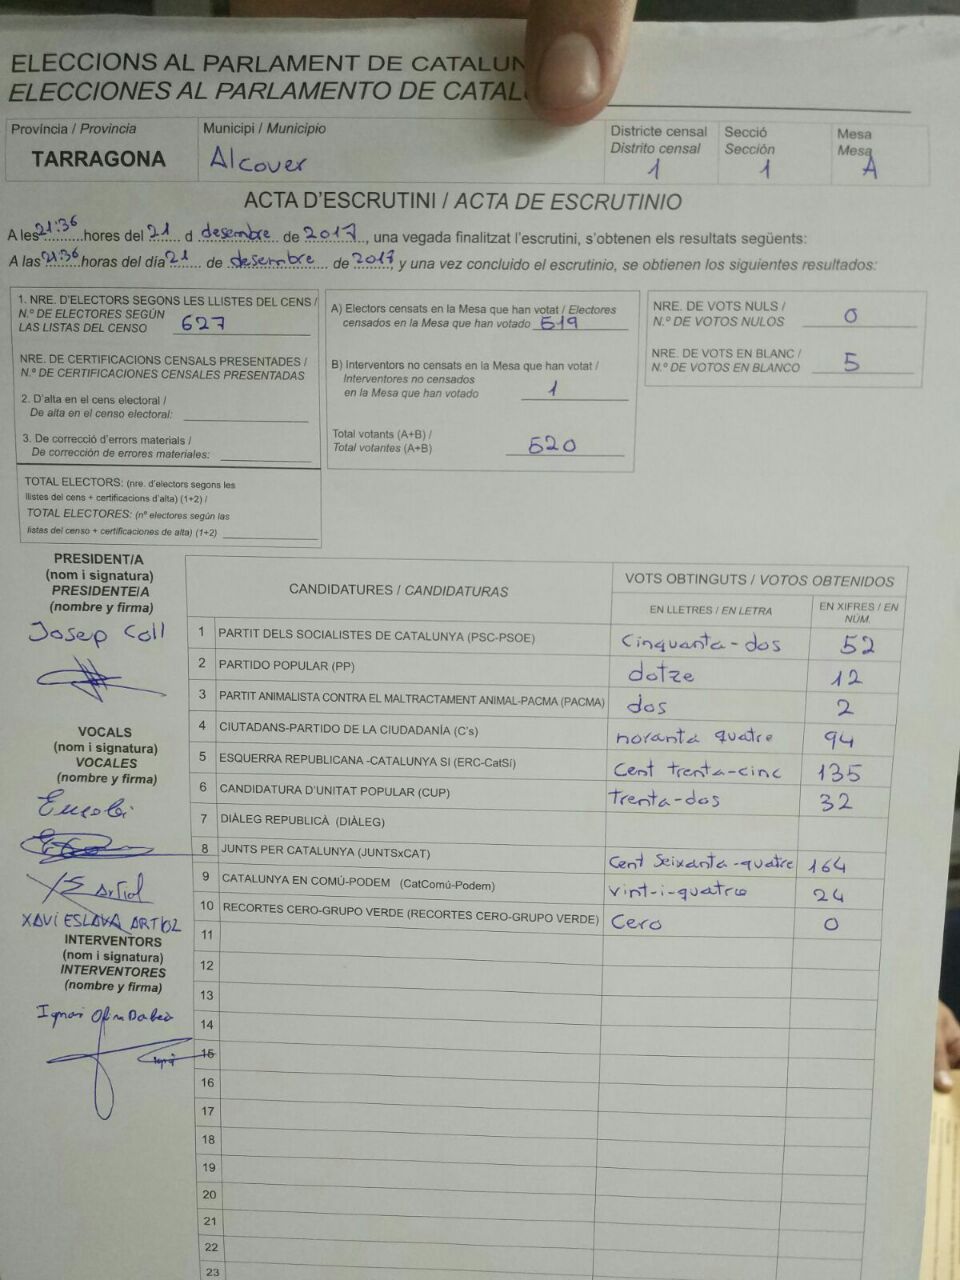 ELECCIONS AL PARLAMENT DE CATALUN
ELECCIONES AL PARLAMENTO DE CATAL
Província / Provincia
TARRAGONA
Municipi / Municipio
Alcover
Districte censal
Distrito censal
1
Secció
Sección
1
Mesa
Mesa
A
ACTA D'ESCRUTINI / ACTA DE ESCRUTINIO
A les 21:36 hores del 21 d desembre de 2017, una vegada finalitzat l'escrutini, s'obtenen els resultats següents:
A las 21:36 horas del día 21 de desembre de 2017, y una vez concluido el escrutinio, se obtienen los siguientes resultados:
1. NRE. D'ELECTORS SEGONS LES LLISTES DEL CENS /
N.º DE ELECTORES SEGÚN
LAS LISTAS DEL CENSO 627
NRE. DE CERTIFICACIONS CENSALS PRESENTADES /
N.º DE CERTIFICACIONES CENSALES PRESENTADAS
2. D'alta en el cens electoral /
De alta en el censo electoral:
3. De correcció d'errors materials /
De corrección de errores materiales:
TOTAL ELECTORS: (nre. d'electors segons les
llistes del cens + certificacions d'alta) (1+2) /
TOTAL ELECTORES: (nº electores según las
listas del censo + certificaciones de alta) (1+2)
A) Electors censats en la Mesa que han votat / Electores
censados en la Mesa que han votado 519
B) Interventors no censats en la Mesa que han votat /
Interventores no censados
en la Mesa que han votado 1
Total votants (A+B) /
Total votantes (A+B) 520
NRE. DE VOTS NULS /
N.º DE VOTOS NULOS 0
NRE. DE VOTS EN BLANC /
N.º DE VOTOS EN BLANCO 5
PRESIDENT/A
(nom i signatura)
PRESIDENTE/A
(nombre y firma)
Josep Coll
VOCALS
(nom i signatura)
VOCALES
(nombre y firma)
XAVI ESLAVA ARTIOZ
INTERVENTORS
(nom i signatura)
INTERVENTORES
(nombre y firma)
CANDIDATURES / CANDIDATURAS
VOTS OBTINGUTS / VOTOS OBTENIDOS
EN LLETRES / EN LETRA
EN XIFRES / EN NÚM.
1 PARTIT DELS SOCIALISTES DE CATALUNYA (PSC-PSOE) Cinquanta-dos 52
2 PARTIDO POPULAR (PP) dotze 12
3 PARTIT ANIMALISTA CONTRA EL MALTRACTAMENT ANIMAL-PACMA (PACMA) dos 2
4 CIUTADANS-PARTIDO DE LA CIUDADANÍA (C's) noranta quatre 94
5 ESQUERRA REPUBLICANA -CATALUNYA SI (ERC-CatSí) Cent trenta-cinc 135
6 CANDIDATURA D'UNITAT POPULAR (CUP) Trenta-dos 32
7 DIÀLEG REPUBLICÀ (DIÀLEG)
8 JUNTS PER CATALUNYA (JUNTSxCAT) Cent Seixanta-quatre 164
9 CATALUNYA EN COMÚ-PODEM (CatComú-Podem) Vint-i-quatre 24
10 RECORTES CERO-GRUPO VERDE (RECORTES CERO-GRUPO VERDE) Cero 0
11
12
13
14
15
16
17
18
19
20
21
22
23